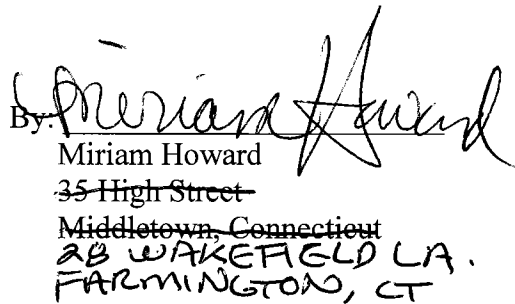 By: Miriam Howard
Miriam Howard
35 High Street
Middletown, Connecticut
28 WAKEFIELD LA.
FARMINGTON, CT